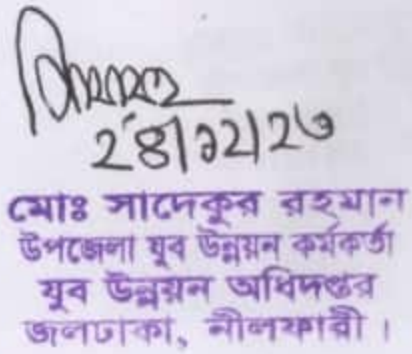 ২৪|১২|২৩
মোঃ সাদেকুর রহমান
উপজেলা যুব উন্নয়ন কর্মকর্তা
যুব উন্নয়ন অধিদপ্তর
জলঢাকা, নীলফামারী।